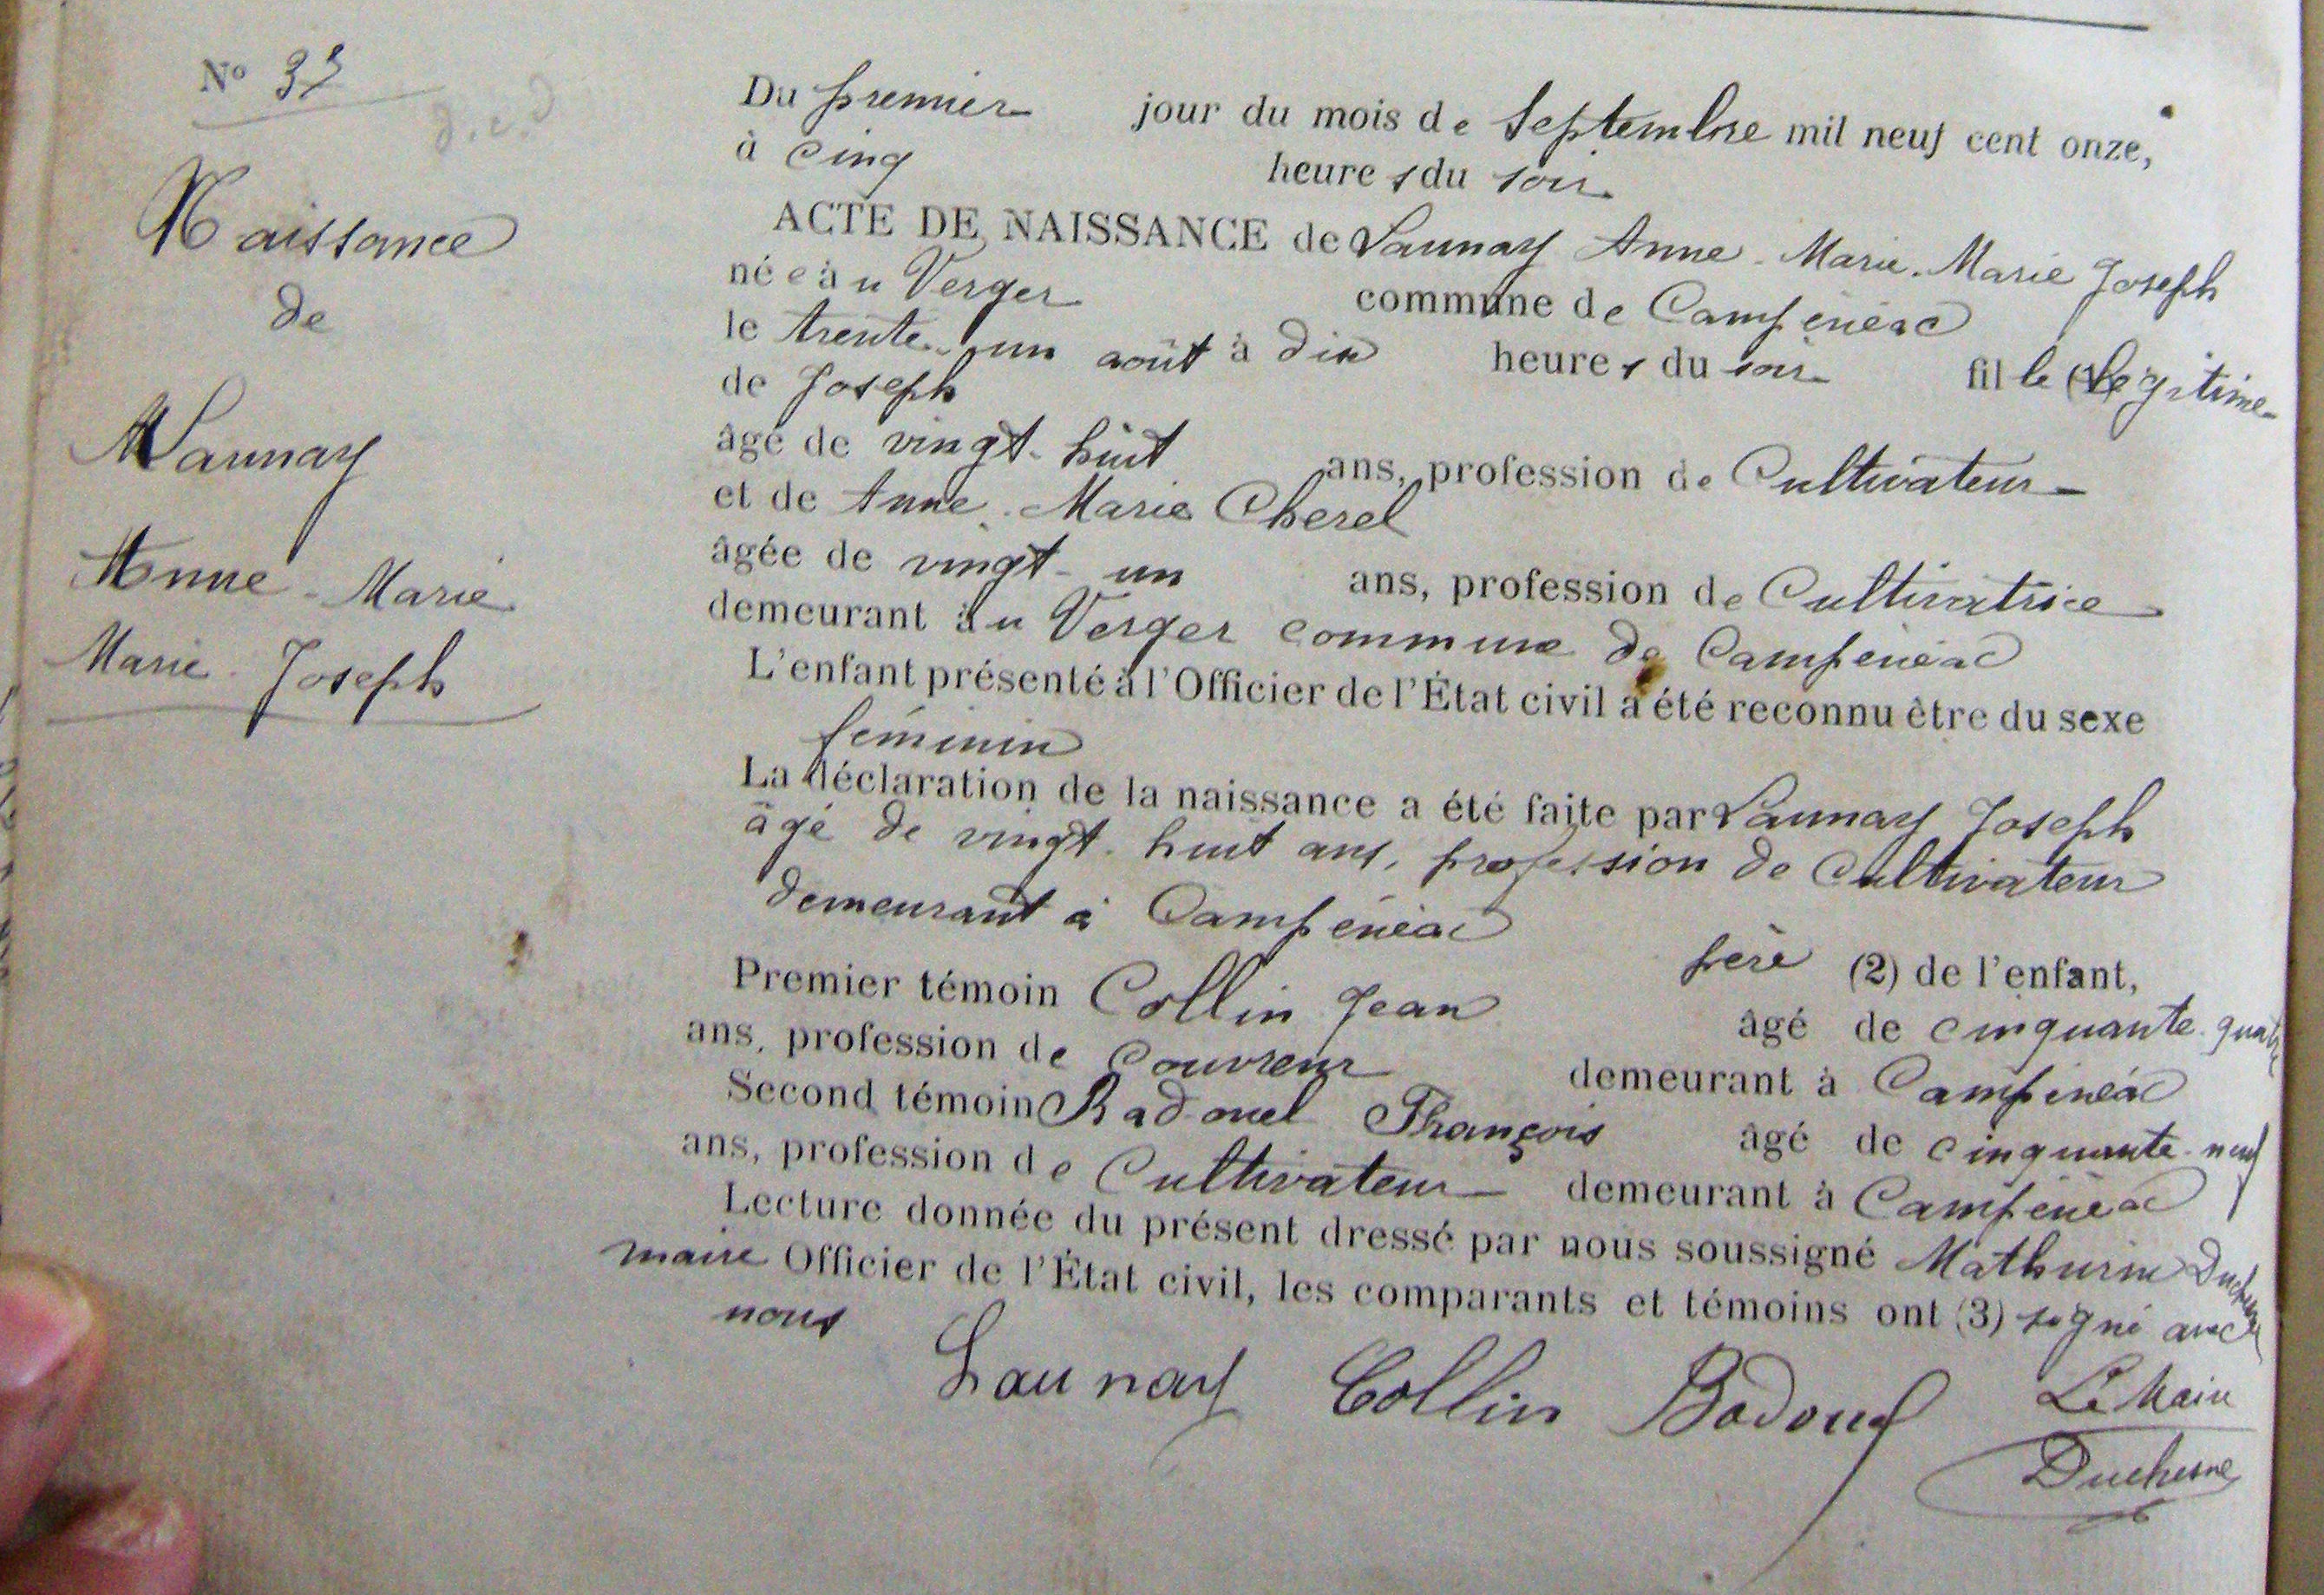 N° 33
d.c.d
Naissance
de
Launay
Anne-Marie
Marie Joseph
Du premier jour du mois de Septembre mil neuf cent onze,
à cinq heures du soir
ACTE DE NAISSANCE de Launay Anne-Marie. Marie Joseph
née au Verger commune de Campénéac
le trente-un août à dix heures du soir fille (1) légitime
de Joseph
âgé de vingt-huit ans, profession de Cultivateur
et de Anne-Marie Cherel
âgée de vingt-un ans, profession de Cultivatrice
demeurant au Verger commune de Campénéac
L'enfant présenté à l'Officier de l'État civil a été reconnu être du sexe
féminin
La déclaration de la naissance a été faite par Launay Joseph
âgé de vingt-huit ans, profession de Cultivateur
demeurant à Campénéac
père (2) de l'enfant,
Premier témoin Collin Jean âgé de cinquante-quatre
ans, profession de Couvreur demeurant à Campénéac
Second témoin Badouel François âgé de cinquante-neuf
ans, profession de Cultivateur demeurant à Campénéac
Lecture donnée du présent dressé par nous soussigné Mathurin Duchesne
maire Officier de l'État civil, les comparants et témoins ont (3) signé avec
nous
Launay Collin Badouel Le Maire
Duchesne